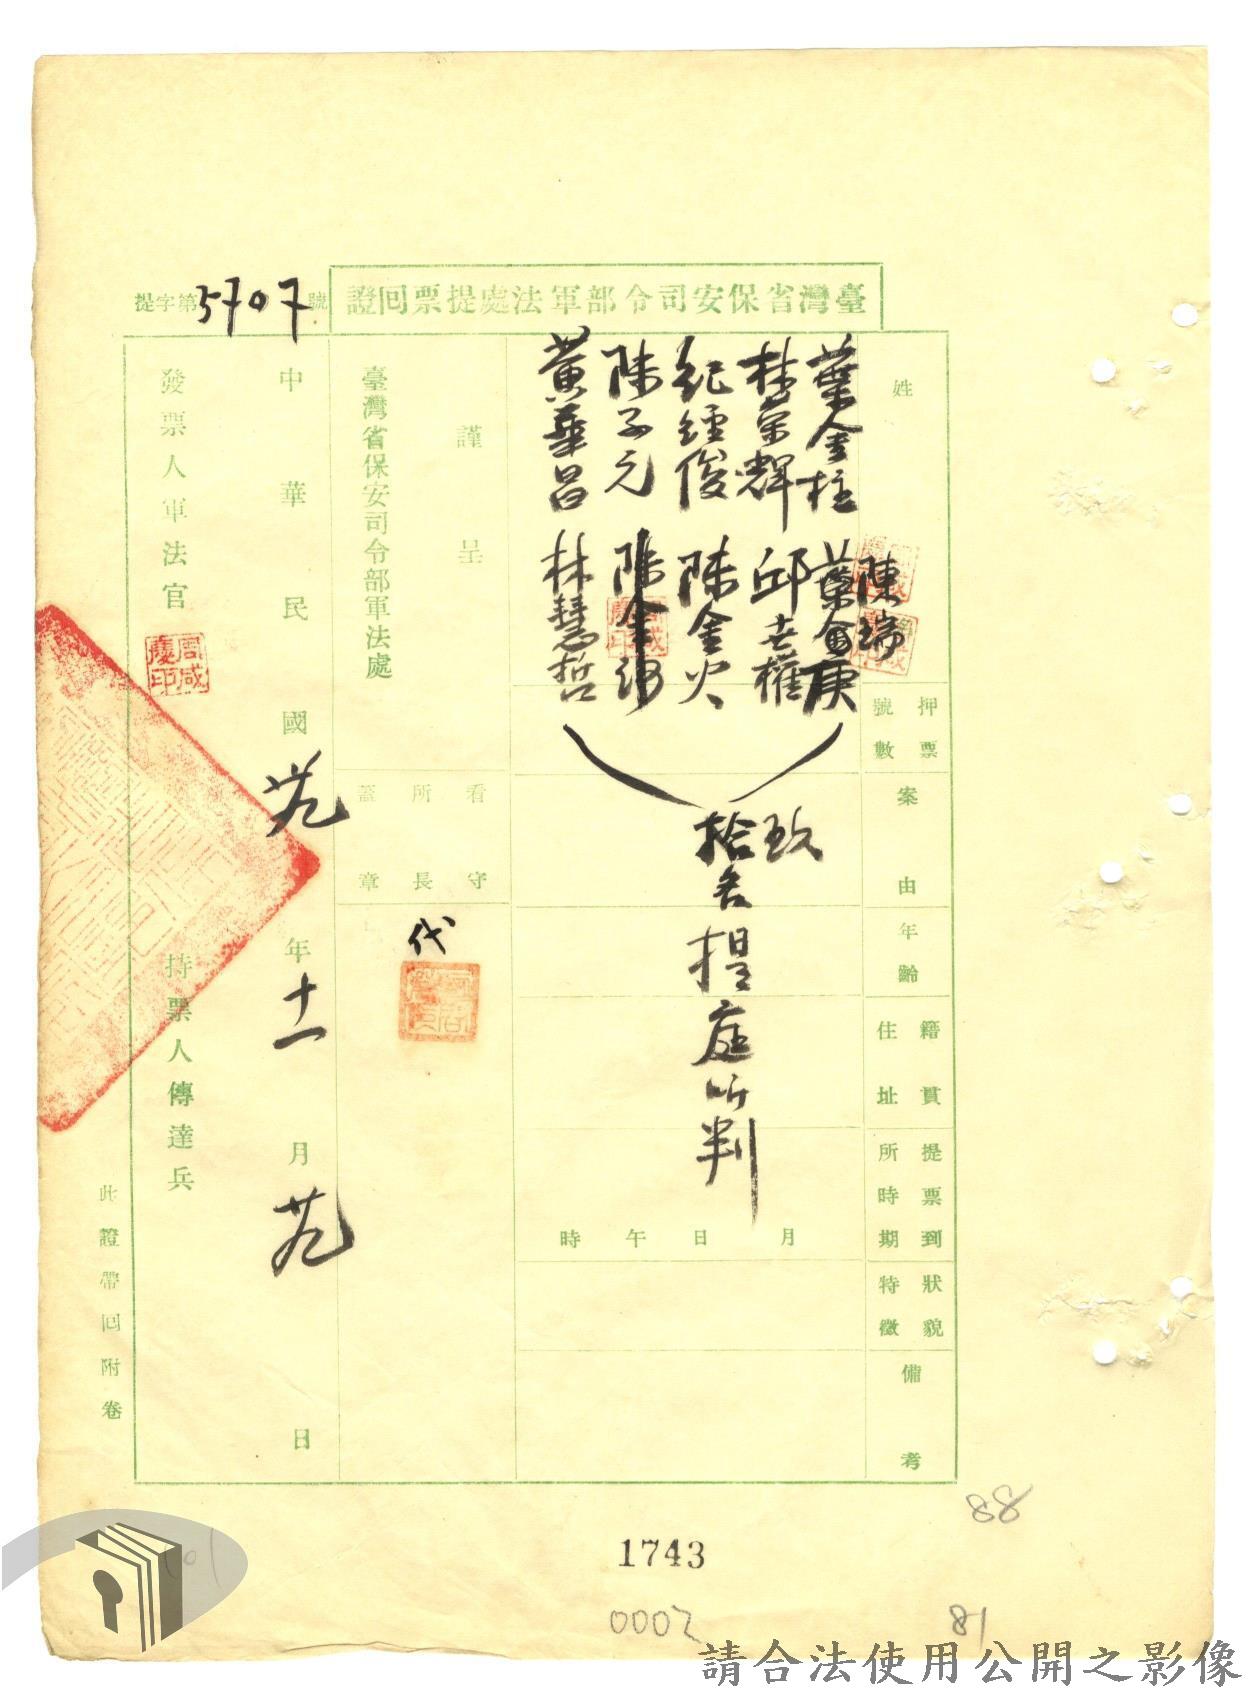 臺灣省保安司令部軍法處提票回證
提字第5707號
姓
押票號數
案由
年齡
籍貫住址
提票到所時期
狀貌特徵
備考
葉金柱
陳瑞
葉金庚
林榮輝
邱士權
紀經俊
陳金火
陳子元
陳金
黃華昌
林慧哲
玖
拾名提庭听判
月日午時
謹呈
臺灣省保安司令部軍法處
看守所長蓋章
代
中華民國卅九年十一月廿九日
發票人軍法官
周咸慶印
持票人傳達兵
此證帶回附卷
88
1743
0002
81
請合法使用公開之影像